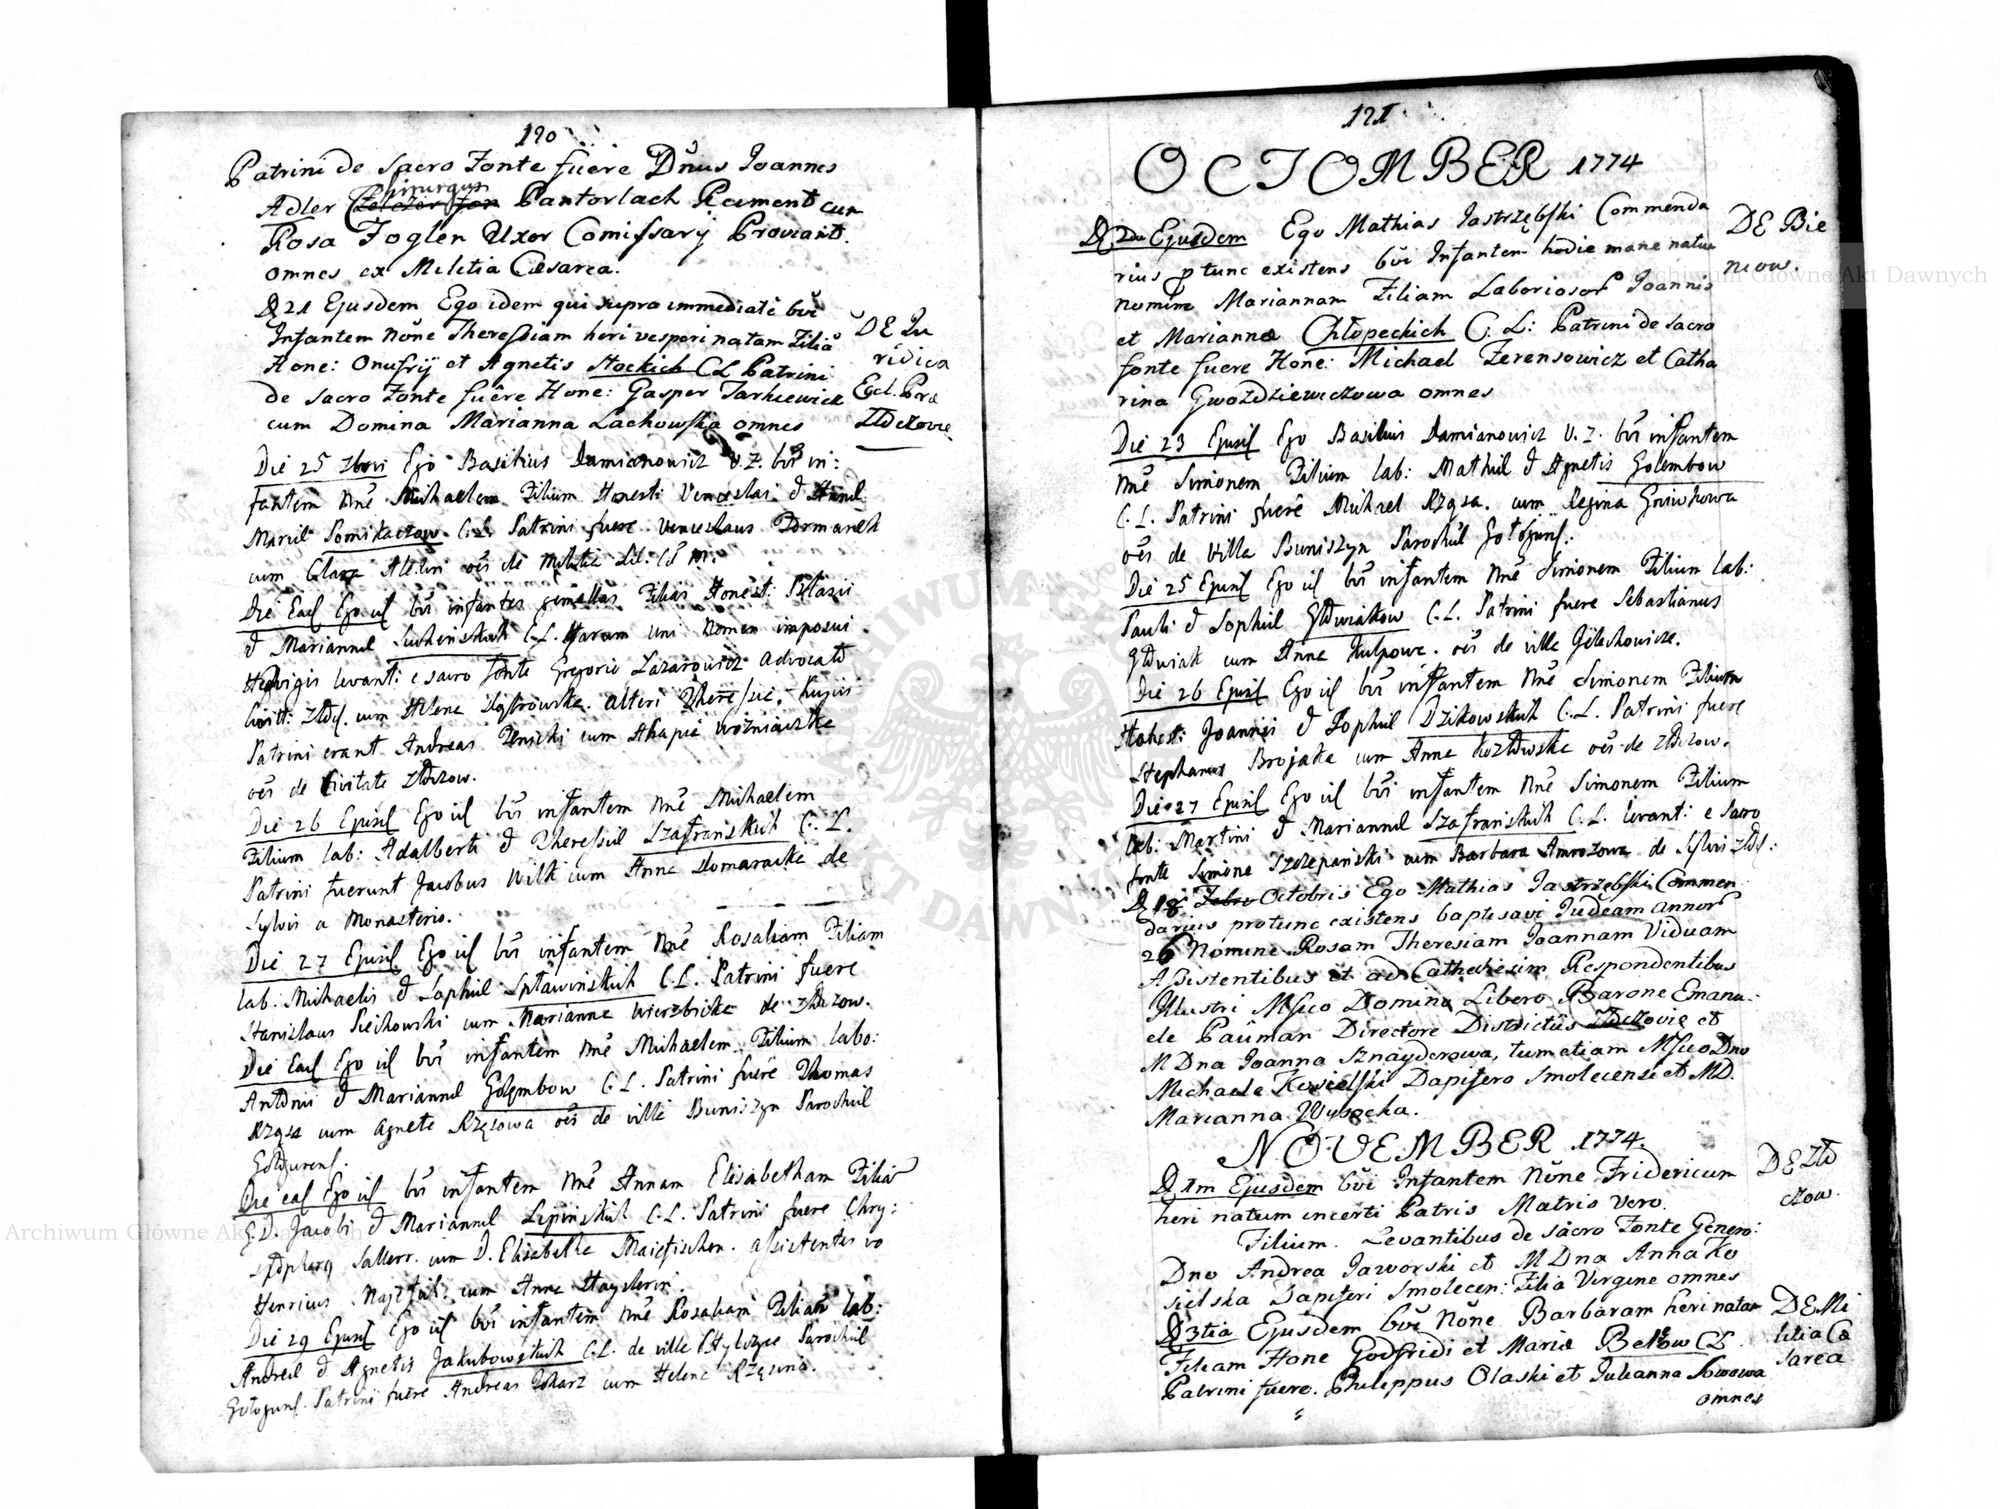 190
Patrini de Sacro Fonte fuere Dnus Joannes
Adler Chirurgus Pantorlach Reiment cum
Rosa Foglen Uxor Comissarij Proviant.
omnes ex Militia Cæsarea.
D 21 Ejusdem Ego idem qui supra immediate bũi
Infantem Nõne Theressiam heri vesperi natam Filiã
Hone: Onufrij et Agnetis Stockich CL Patrini
de Sacro Fonte fuere Hone: Gasper Tarkiewick
cum Domina Marianna Lachowska omnes
DE Ju
ridica
Eccl. Præ
Złoczoviæ
Die 25 7bris Ego Basilius Damianowicz V.Z. bũi in:
fantem Nnẽ Michaelem Filium Honesti Venceslai &
C.L. Patrini fuere Venceslaus
cum Clara de Militia
Die Ead Ego id bũi infantes gemellas Filias Honest:
& Mariannæ C.L. Harum uni Nomen imposui
Hedvigis levant: e sacro fonte Gregorio Lazarowicz Advocato
cum Helena alteri Theressiæ, hujus
Patrini erant Andreas cum Ahapia Wozniaczka
oẽs de Civitate Złoczow.
Die 26 Ejusd Ego id bũi infantem Nnẽ Michaelem
Filium lab: Adalberti & Theressiæ Szafranskich C.L.
Patrini fuerunt Jacobus Wilk cum Anna Domaracka de
Sylvis a Monasterio.
Die 27 Ejusd Ego id bũi infantem Nnẽ Rosaliam Filiam
lab: Michaelis & Sophiæ Spławinskich C.L. Patrini fuere
Stanislaus Pieikowski cum Marianna Wierzbicka de Złoczow.
Die Ead Ego id bũi infantem Nnẽ Michaelem Filium labo:
Antonii & Mariannæ Golembow C.L. Patrini fuere Thomas
Rzęsa cum Agnete Rzęsowa oẽs de villa Buniszyn Parochiæ
Gołogurens.
Die ead Ego id bũi infantem Nnẽ Annam Elisabetham Filiã
G.D. Jacobi & Mariannæ Lipinskich C.L. Patrini fuere Chry:
cum D. Elisabetha assistentes
Henricus cum Anna
Die 29 Ejusd Ego id bũi infantem Nnẽ Rosaliam Filiam lab:
Andreæ & Agnetis Jakubowskich C.L. de villa Parochiæ
Gołogurs. Patrini fuere Andreas cum Helena Rzęsina.
191
OCTOMBER 1774
D 2da Ejusdem Ego Mathias Jastrzębski Commenda
rius p tunc existens bũi Infantem hodie mane natũ
nomine Mariannam Filiam Laborioso Joannis
et Mariannæ Chłopeckich C: L: Patrini de Sacro
fonte fuere Hone: Michael Ferensowicz et Catha
rina Gwozdziewiczowa omnes
DE Bie
niow.
Die 23 Ejusd Ego Basilius Damianowicz V.Z. bũi infantem
Nnẽ Simonem Filium lab: Mathiæ & Agnetis Golembow
C.L. Patrini fuerẽ Michael Rzęsa cum Regina Gniwkowa
oẽs de villa Buniszyn Parochiæ Gołogurs.
Die 25 Ejusd Ego id bũi infantem Nnẽ Simonem Filium lab:
Pauli & Sophiæ C.L. Patrini fuere Sebastianus
cum Anna oẽs de villa
Die 26 Ejusd Ego id bũi infantem Nnẽ Simonem Filium
Honest: Joannis & Sophiæ Dzikowskich C.L. Patrini fuere
Stephanus Brojaka cum Anna Kozłowska oẽs de Złoczow.
Die 27 Ejusd Ego id bũi infantem Nnẽ Simonem Filium
lab: Martini & Mariannæ Szafranskich C.L. levant: e Sacro
fonte Simone Szczepanski cum Barbara Amrozowa de Sylvis Złoc:
D 18 Febru Octobris Ego Mathias Jastrzębski Commen
darius protunc existens baptisavi Judeam annor
26 Nomine Rosam Theresiam Joannam Viduam
Assistentibus et ad Cathechesim Respondentibus
Illustri Mfico Domino Libero Barone Emanu:
ele Paũman Directore Districtũs Złoczoviæ et
M Dna Joanna Sznayderowa, tum etiam Mfico Dno
Michaele Kosielski Dapifero Smolecensi et MD.
Marianna Wysocka.
NOVEMBER 1774.
D 1m Ejusdem bũi Infantem Nõne Fridericum
heri natum incerti Patris Matris vero.
Filium. Levantibus de Sacro Fonte Genero:
Dno Andrea Jaworski et M Dna Anna Ko
sielska Dapiferi Smolecen: Filia Virgine omnes
DE Zło
czow.
D 3tia Ejusdem bũi Nõne Barbaram heri natam
Filiam Hone Godfridi et Mariæ Bekow CL
Patrini fuere. Philippus Olaski et Julianna Sowowa
omnes
DE Mi
litia Cæ
sarea
ARCHIWUM GŁÓWNE AKT DAWNYCH
Archiwum Główne Akt Dawnych
Archiwum Główne Akt Dawnych